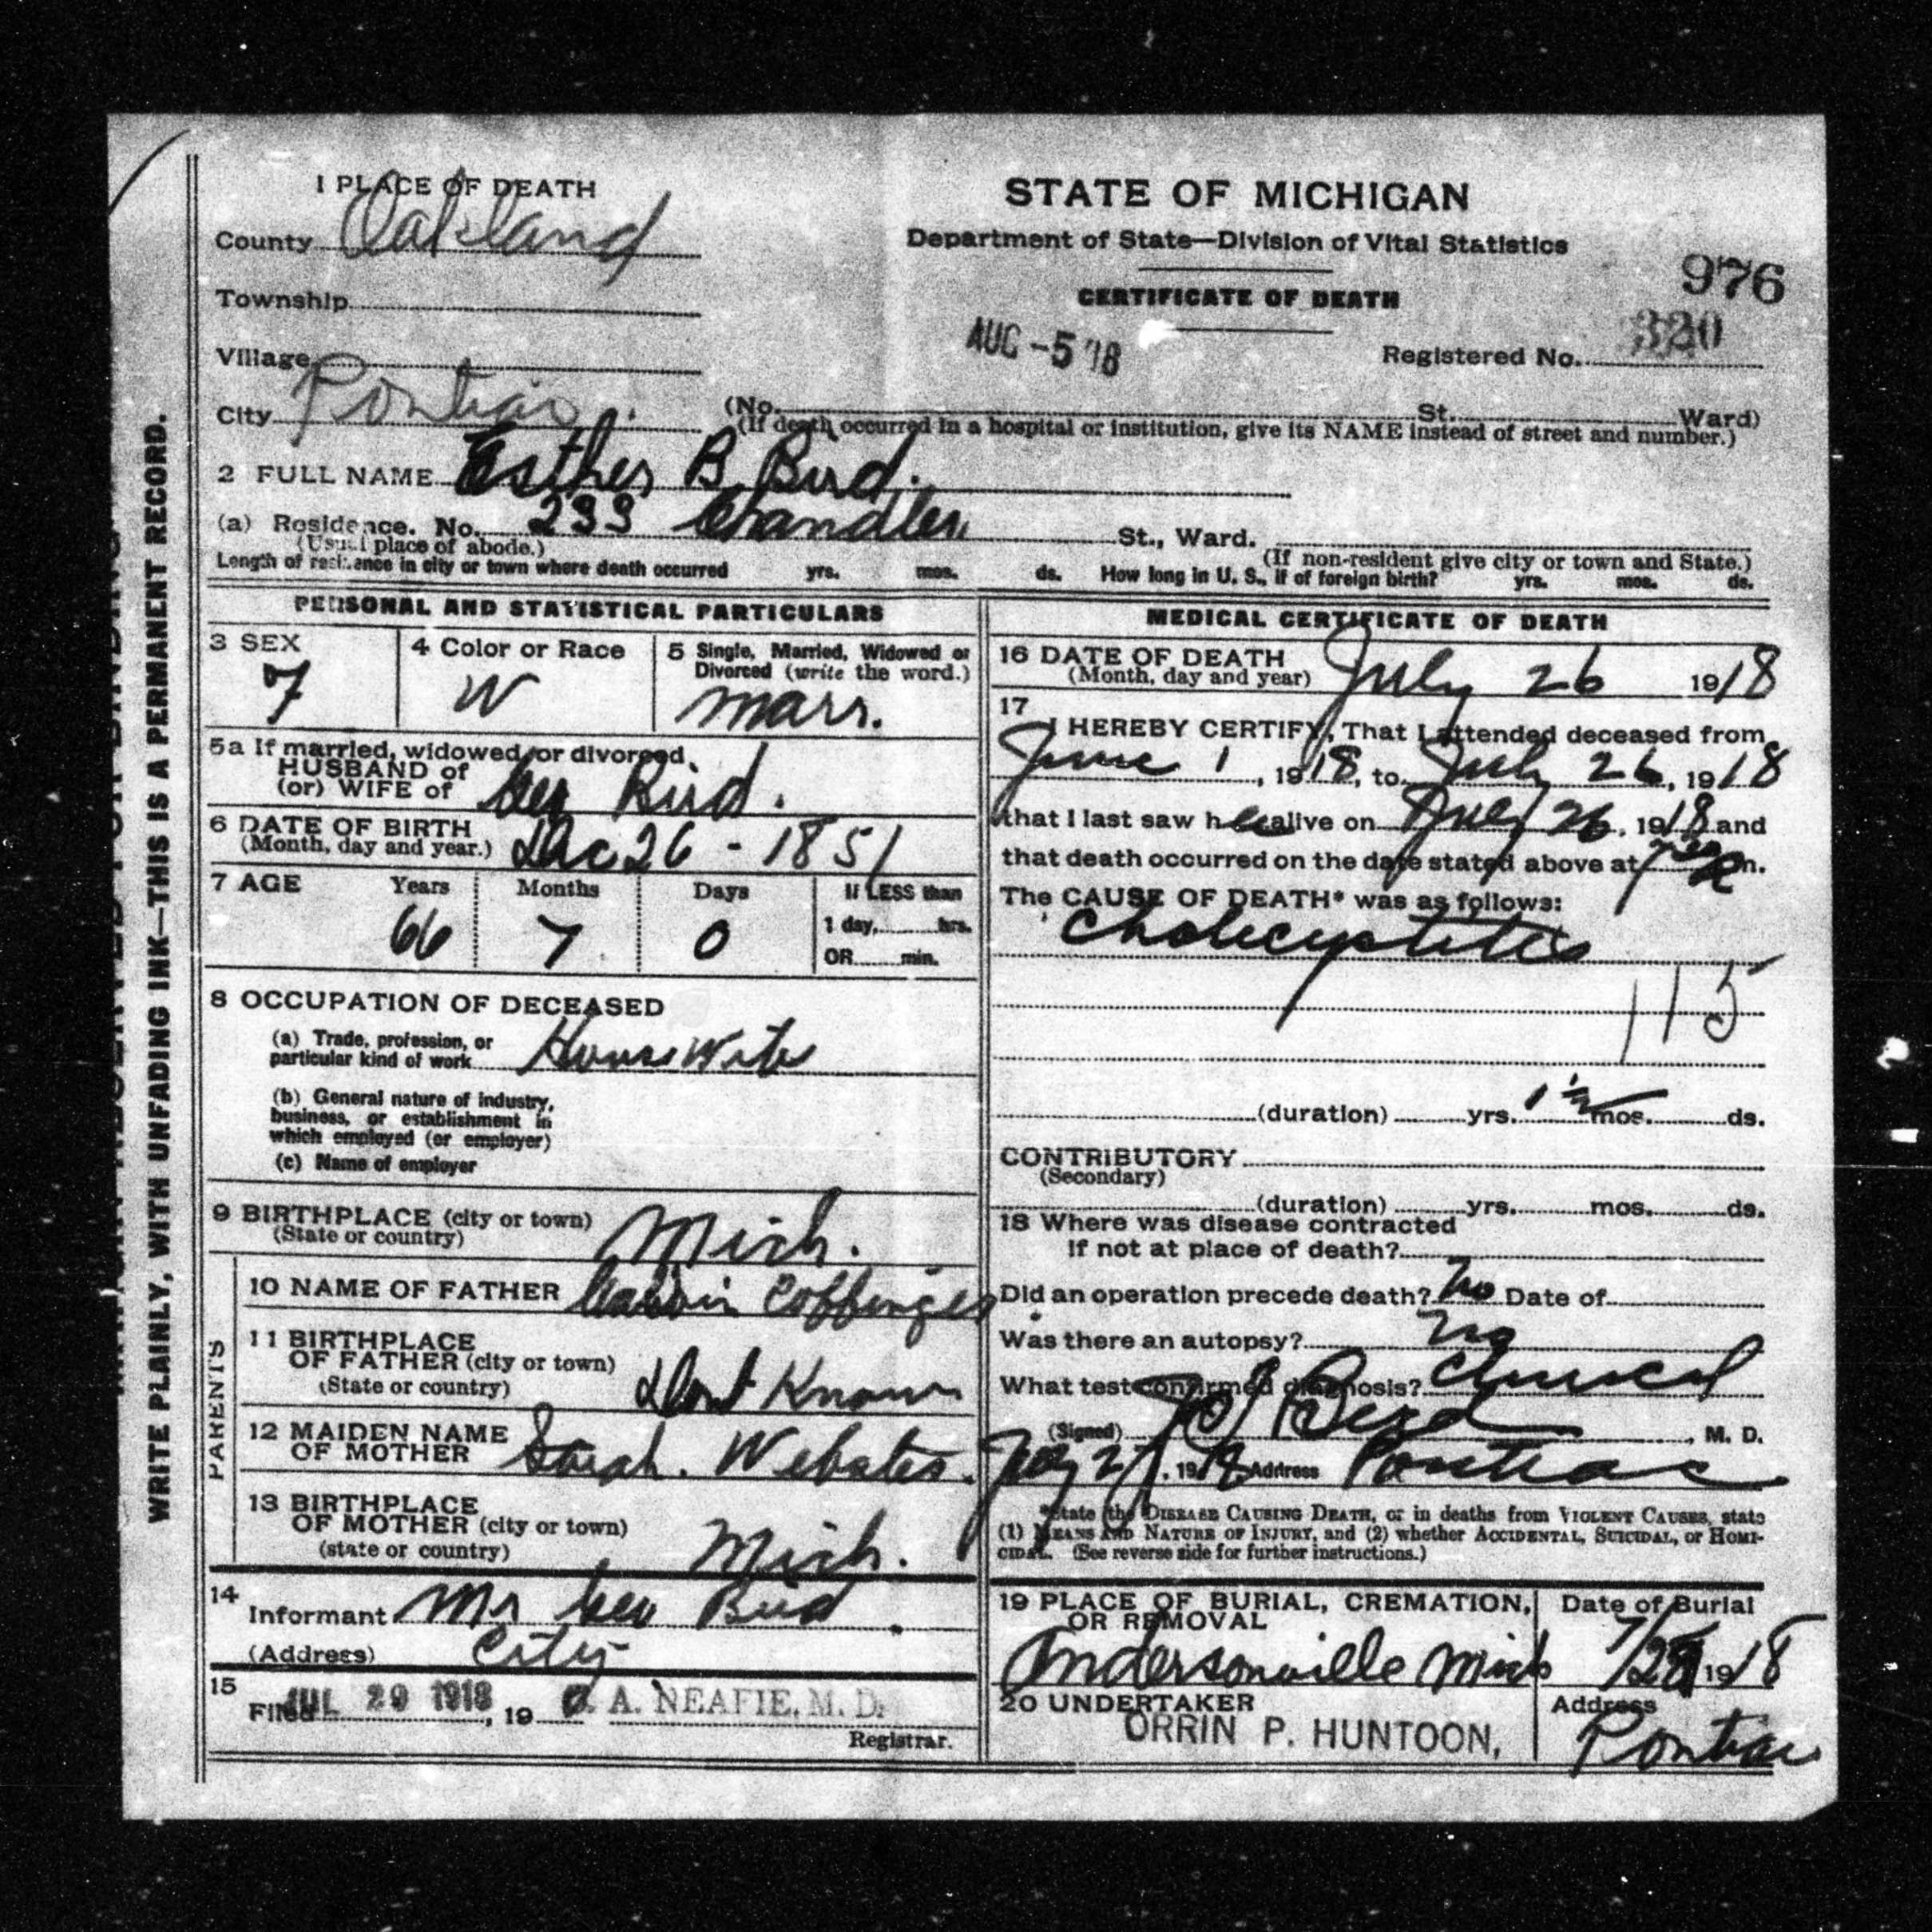 1 PLACE OF DEATH
County Oakland
Township
Village
City Pontiac
STATE OF MICHIGAN
Department of State—Division of Vital Statistics
CERTIFICATE OF DEATH
976
AUG -5 '18
Registered No. 320
(No. St. Ward)
(If death occurred in a hospital or institution, give its NAME instead of street and number.)
2 FULL NAME Esther B. Bird.
(a) Residence. No. 233 Chandler St., Ward.
(Usual place of abode.) (If non-resident give city or town and State.)
Length of residence in city or town where death occurred yrs. mos. ds. How long in U. S., if of foreign birth? yrs. mos. ds.
PERSONAL AND STATISTICAL PARTICULARS
3 SEX
F
4 Color or Race
W
5 Single, Married, Widowed or
Divorced (write the word.)
Marr.
5a If married, widowed, or divorced,
HUSBAND of
(or) WIFE of Geo Bird.
6 DATE OF BIRTH
(Month, day and year.) Dec 26 - 1851
7 AGE Years Months Days If LESS than
66 7 0 1 day, hrs.
OR min.
8 OCCUPATION OF DECEASED
(a) Trade, profession, or
particular kind of work House Wife
(b) General nature of industry,
business, or establishment in
which employed (or employer)
(c) Name of employer
9 BIRTHPLACE (city or town)
(State or country) Mich.
PARENTS
10 NAME OF FATHER Calvin Coffinger
11 BIRTHPLACE
OF FATHER (city or town)
(State or country) Dont Know
12 MAIDEN NAME
OF MOTHER Sarah. Webster.
13 BIRTHPLACE
OF MOTHER (city or town)
(state or country) Mich.
14
Informant Mr Geo Bird.
(Address) City
15
Filed JUL 29 1918, 19 C. A. NEAFIE, M. D.
Registrar.
MEDICAL CERTIFICATE OF DEATH
16 DATE OF DEATH
(Month, day and year) July 26 1918
17
I HEREBY CERTIFY, That I attended deceased from
June 1, 1918, to July 26, 1918
that I last saw her alive on July 26, 1918 and
that death occurred on the date stated above at m.
The CAUSE OF DEATH* was as follows:
Cholecystitis
115
(duration) yrs. 1 1/2 mos. ds.
CONTRIBUTORY
(Secondary)
(duration) yrs. mos. ds.
18 Where was disease contracted
if not at place of death?
Did an operation precede death? No Date of
Was there an autopsy? No
What test confirmed diagnosis? Clinical
(Signed) Bird, M. D.
July 27, 1918 Address Pontiac
*State the DISEASE CAUSING DEATH, or in deaths from VIOLENT CAUSES, state
(1) MEANS AND NATURE OF INJURY, and (2) whether ACCIDENTAL, SUICIDAL, or HOMI-
CIDAL. (See reverse side for further instructions.)
19 PLACE OF BURIAL, CREMATION,
OR REMOVAL
Andersonville Mich
Date of Burial
7/28 1918
20 UNDERTAKER
ORRIN P. HUNTOON,
Address
Pontiac
WRITE PLAINLY, WITH UNFADING INK—THIS IS A PERMANENT RECORD.